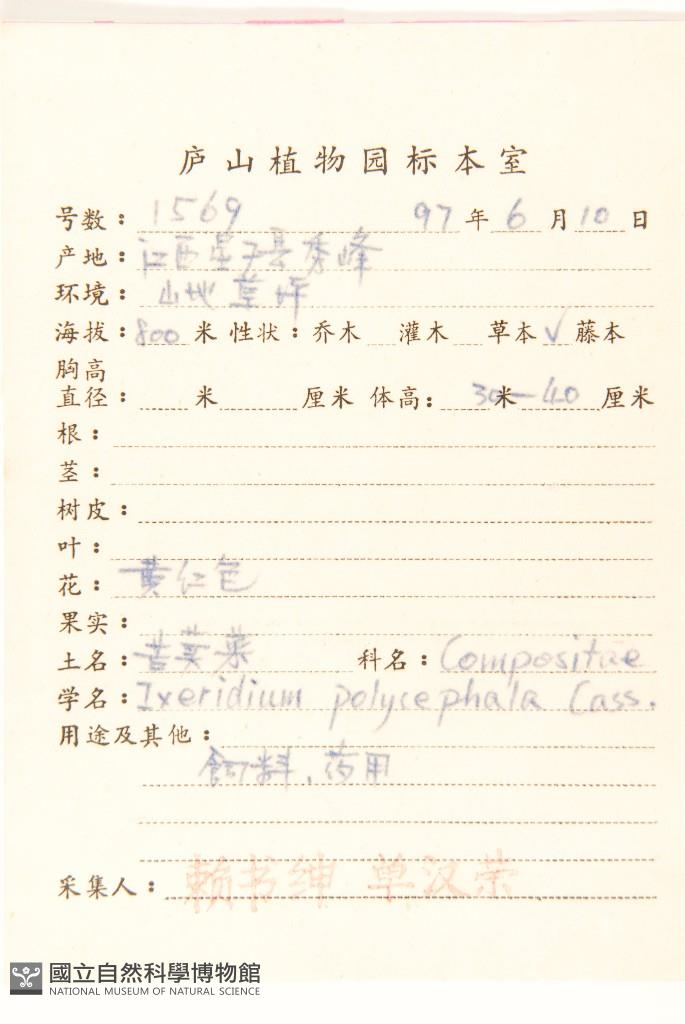 庐山植物园标本室
号数：1569 97年6月10日
产地：江西星子县秀峰
环境：山地草坪
海拔：800米 性状：乔木 灌木 草本√藤本
胸高
直径： 米 厘米 体高： 30米—40厘米
根：
茎：
树皮：
叶：
花：黄仁色
果实：
土名：苦荬菜 科名：Compositae
学名：Ixeridium polycephala Cass.
用途及其他：
饲料、药用
采集人：赖书绅 单汉荣
國立自然科學博物館
NATIONAL MUSEUM OF NATURAL SCIENCE